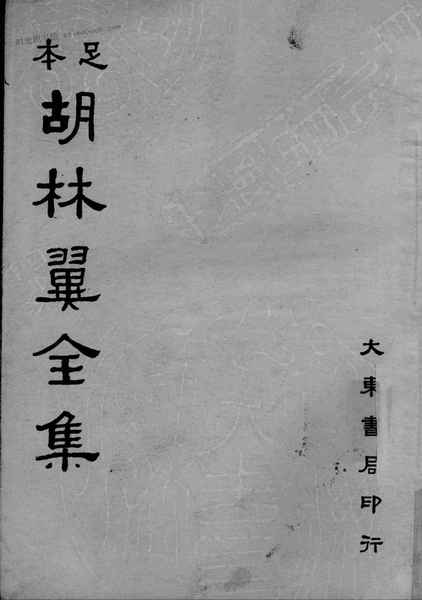 足本
胡林翼全集
大東書局印行